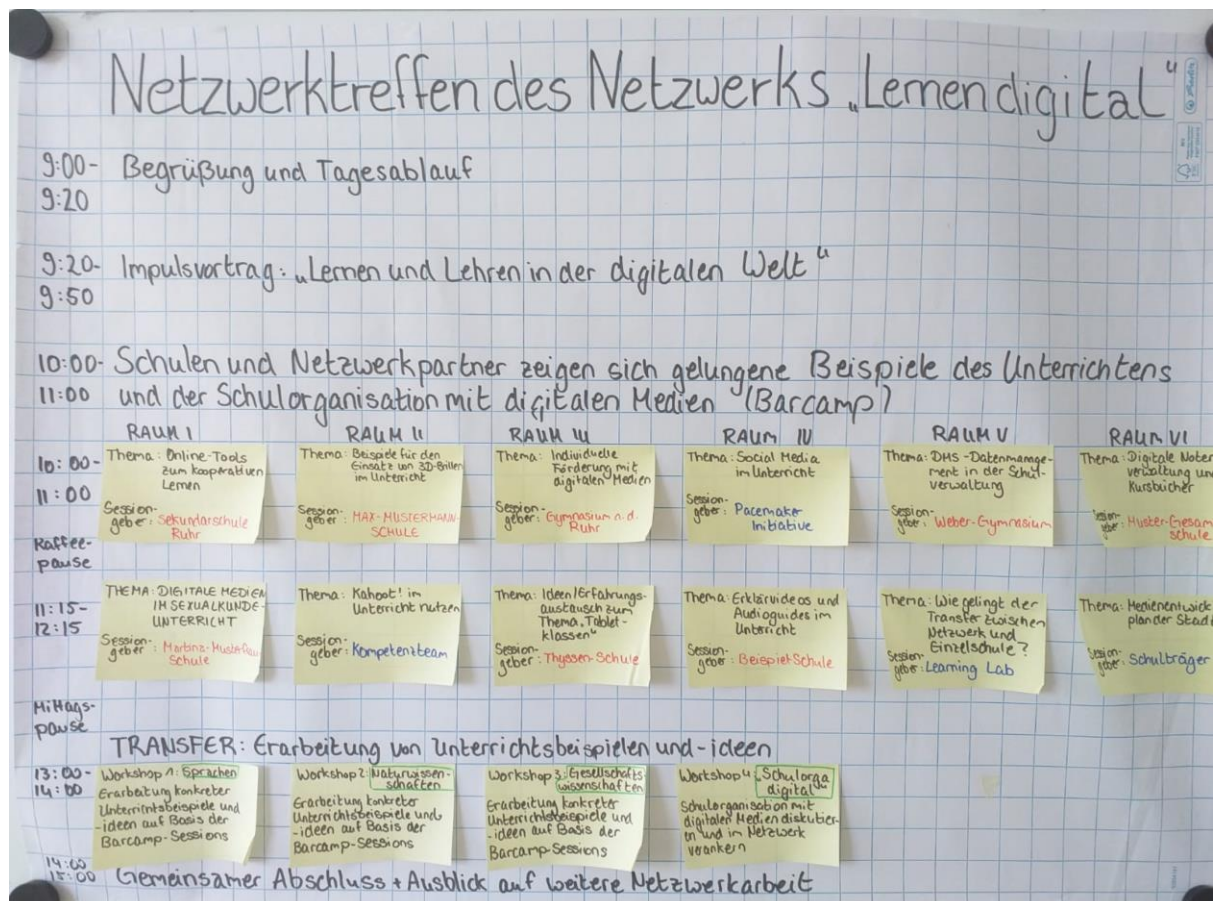 Netzwerktreffen des Netzwerks „Lernen digital"
9:00- Begrüßung und Tagesablauf
9:20
9:20- Impulsvortrag: „Lernen und Lehren in der digitalen Welt"
9:50
10:00- Schulen und Netzwerkpartner zeigen sich gelungene Beispiele des Unterrichtens
11:00 und der Schulorganisation mit digitalen Medien (Barcamp)
10:00-
11:00
RAUM I
Thema: Online-Tools
zum kooperativen
Lernen
Session-
geber: Sekundarschule
Ruhr
RAUM II
Thema: Beispiele für den
Einsatz von 3D-Brillen
im Unterricht
Session-
geber: MAX-MUSTERMANN-
SCHULE
RAUM III
Thema: Individuelle
Förderung mit
digitalen Medien
Session-
geber: Gymnasium a. d.
Ruhr
RAUM IV
Thema: Social Media
im Unterricht
Session-
geber: Pacemaker
Initiative
RAUM V
Thema: DMS-Datenmanage-
ment in der Schul-
verwaltung
Session-
geber: Weber-Gymnasium
RAUM VI
Thema: Digitale Noten
verwaltung un
Kursbücher
Session-
geber: Muster-Gesam
schule
Kaffee-
pause
11:15-
12:15
THEMA: DIGITALE MEDIEN
IM SEXUALKUNDE-
UNTERRICHT
Session-
geber:
Schule
Thema: Kahoot! im
Unterricht nutzen
Session-
geber: Kompetenzteam
Thema: Ideen/Erfahrungs-
austausch zum
Thema „Tablet-
klassen"
Session-
geber: Thyssen-Schule
Thema: Erklärvideos und
Audioguides im
Unterricht
Session-
geber: Beispiel-Schule
Thema: Wie gelingt der
Transfer zwischen
Netzwerk und
Einzelschule?
Session-
geber: Learning Lab
Thema: Medienentwick
plan der Stad
Session-
geber: Schulträger
Mittags-
pause
TRANSFER: Erarbeitung von Unterrichtsbeispielen und -ideen
13:00-
14:00
Workshop 1: Sprachen
Erarbeitung konkreter
Unterrichtsbeispiele und
-ideen auf Basis der
Barcamp-Sessions
Workshop 2: Naturwissen-
schaften
Erarbeitung konkreter
Unterrichtsbeispiele und
-ideen auf Basis der
Barcamp-Sessions
Workshop 3: Gesellschafts
wissenschaften
Erarbeitung konkreter
Unterrichtsbeispiele und
-ideen auf Basis der
Barcamp-Sessions
Workshop 4: „Schulorga
digital"
Schulorganisation mit
digitalen Medien diskutier-
en und im Netzwerk
verankern
14:00
15:00 Gemeinsamer Abschluss + Ausblick auf weitere Netzwerkarbeit